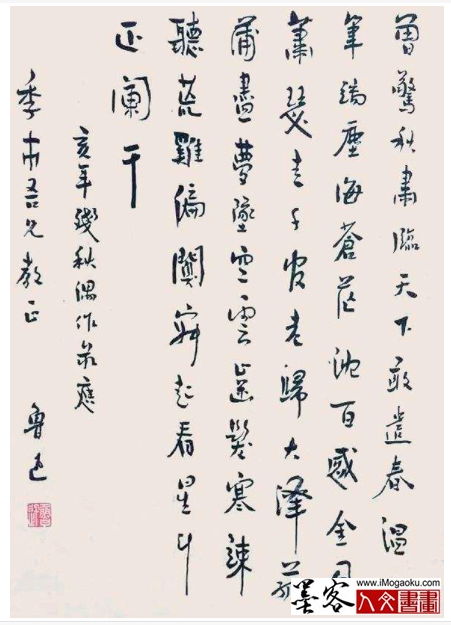 曾驚秋肅臨天下敢遣春溫
筆端塵海蒼茫沈百感金風
蕭瑟走千官老歸大澤菰
蒲盡夢墜空雲齒髮寒竦
聽荒雞偏闃寂起看星斗
正闌干
亥年殘秋偶作錄應
季巿吾兄教正
魯迅
www.iMogaoku.com
墨客人文書畫